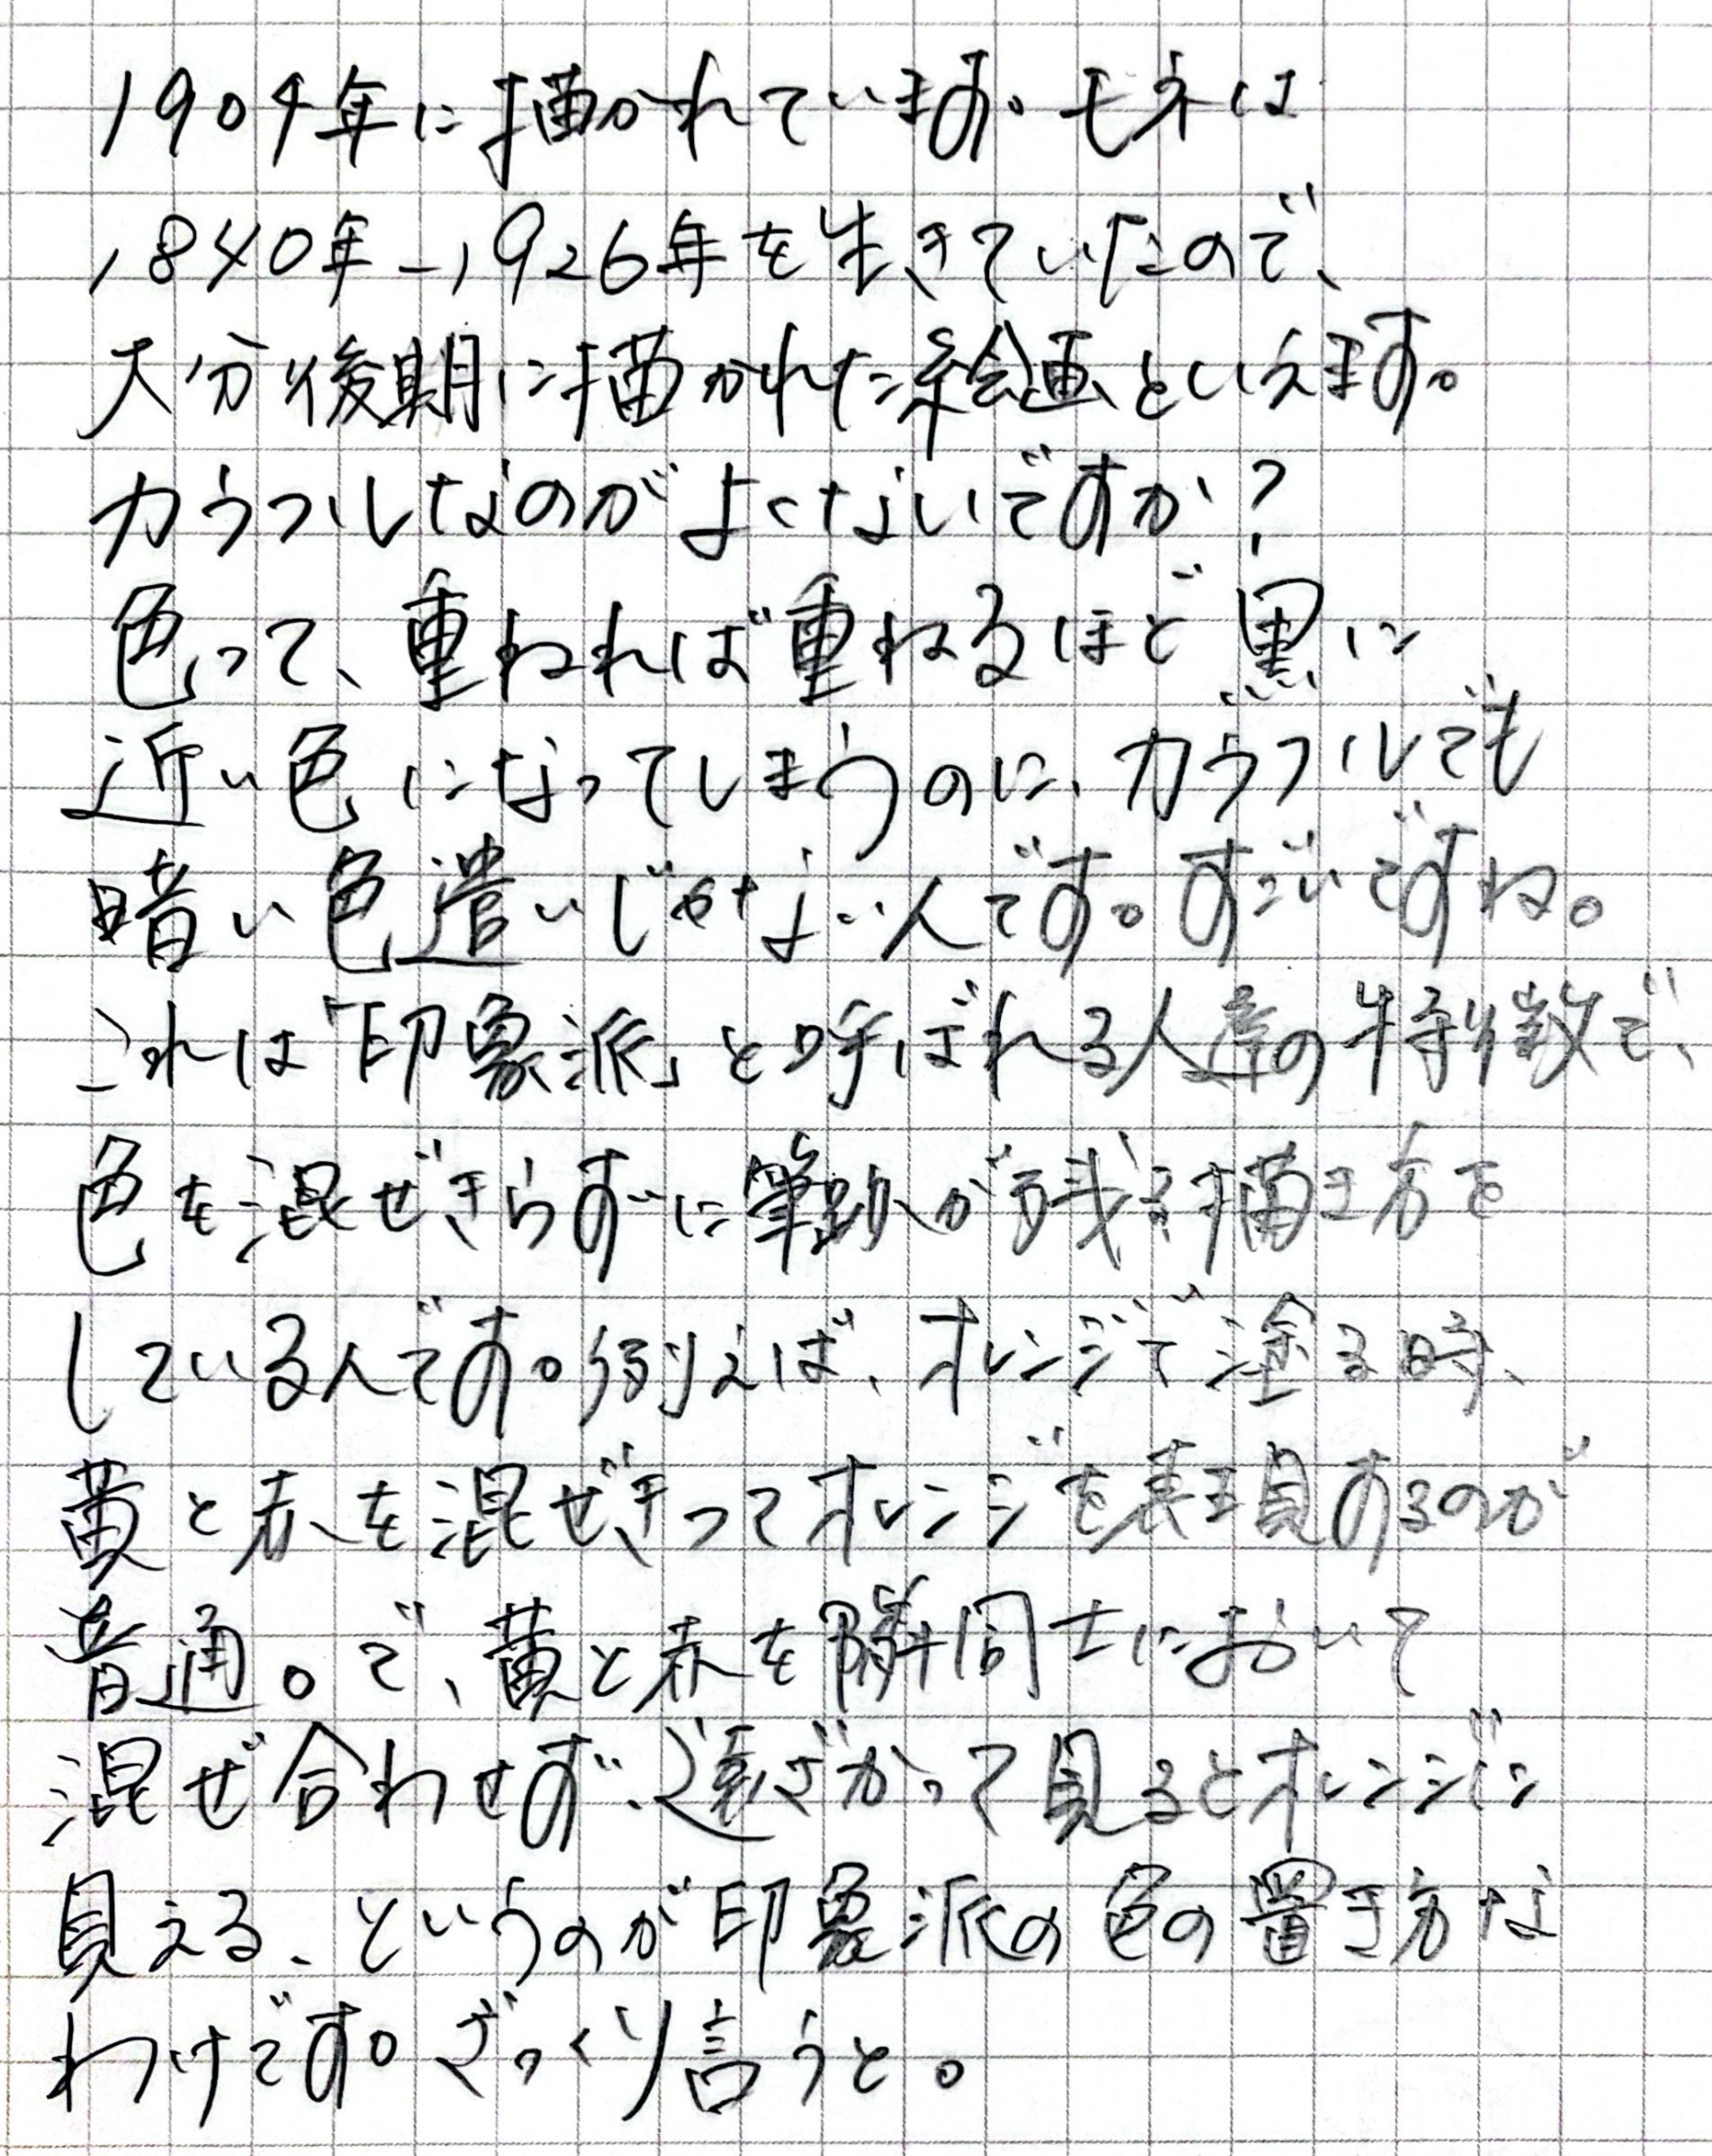 1904年に描かれています。モネは
1840年-1926年を生きていたので、
大分後期に描かれた絵画といえます。
カラフルなのがよくないですか?
色って、重ねれば重ねるほど黒に
近い色になってしまうのに、カラフルでも
暗い色遣いじゃない人です。すごいですね。
これは「印象派」と呼ばれる人達の特徴で、
色を混ぜきらずに筆跡が残る描き方を
している人です。例えば、オレンジで塗る時、
黄と赤を混ぜきってオレンジを表現するのが
普通。で、黄と赤を隣同士において
混ぜ合わせず、遠ざかって見るとオレンジに
見える、というのが印象派の色の置き方な
わけです。ざっくり言うと。